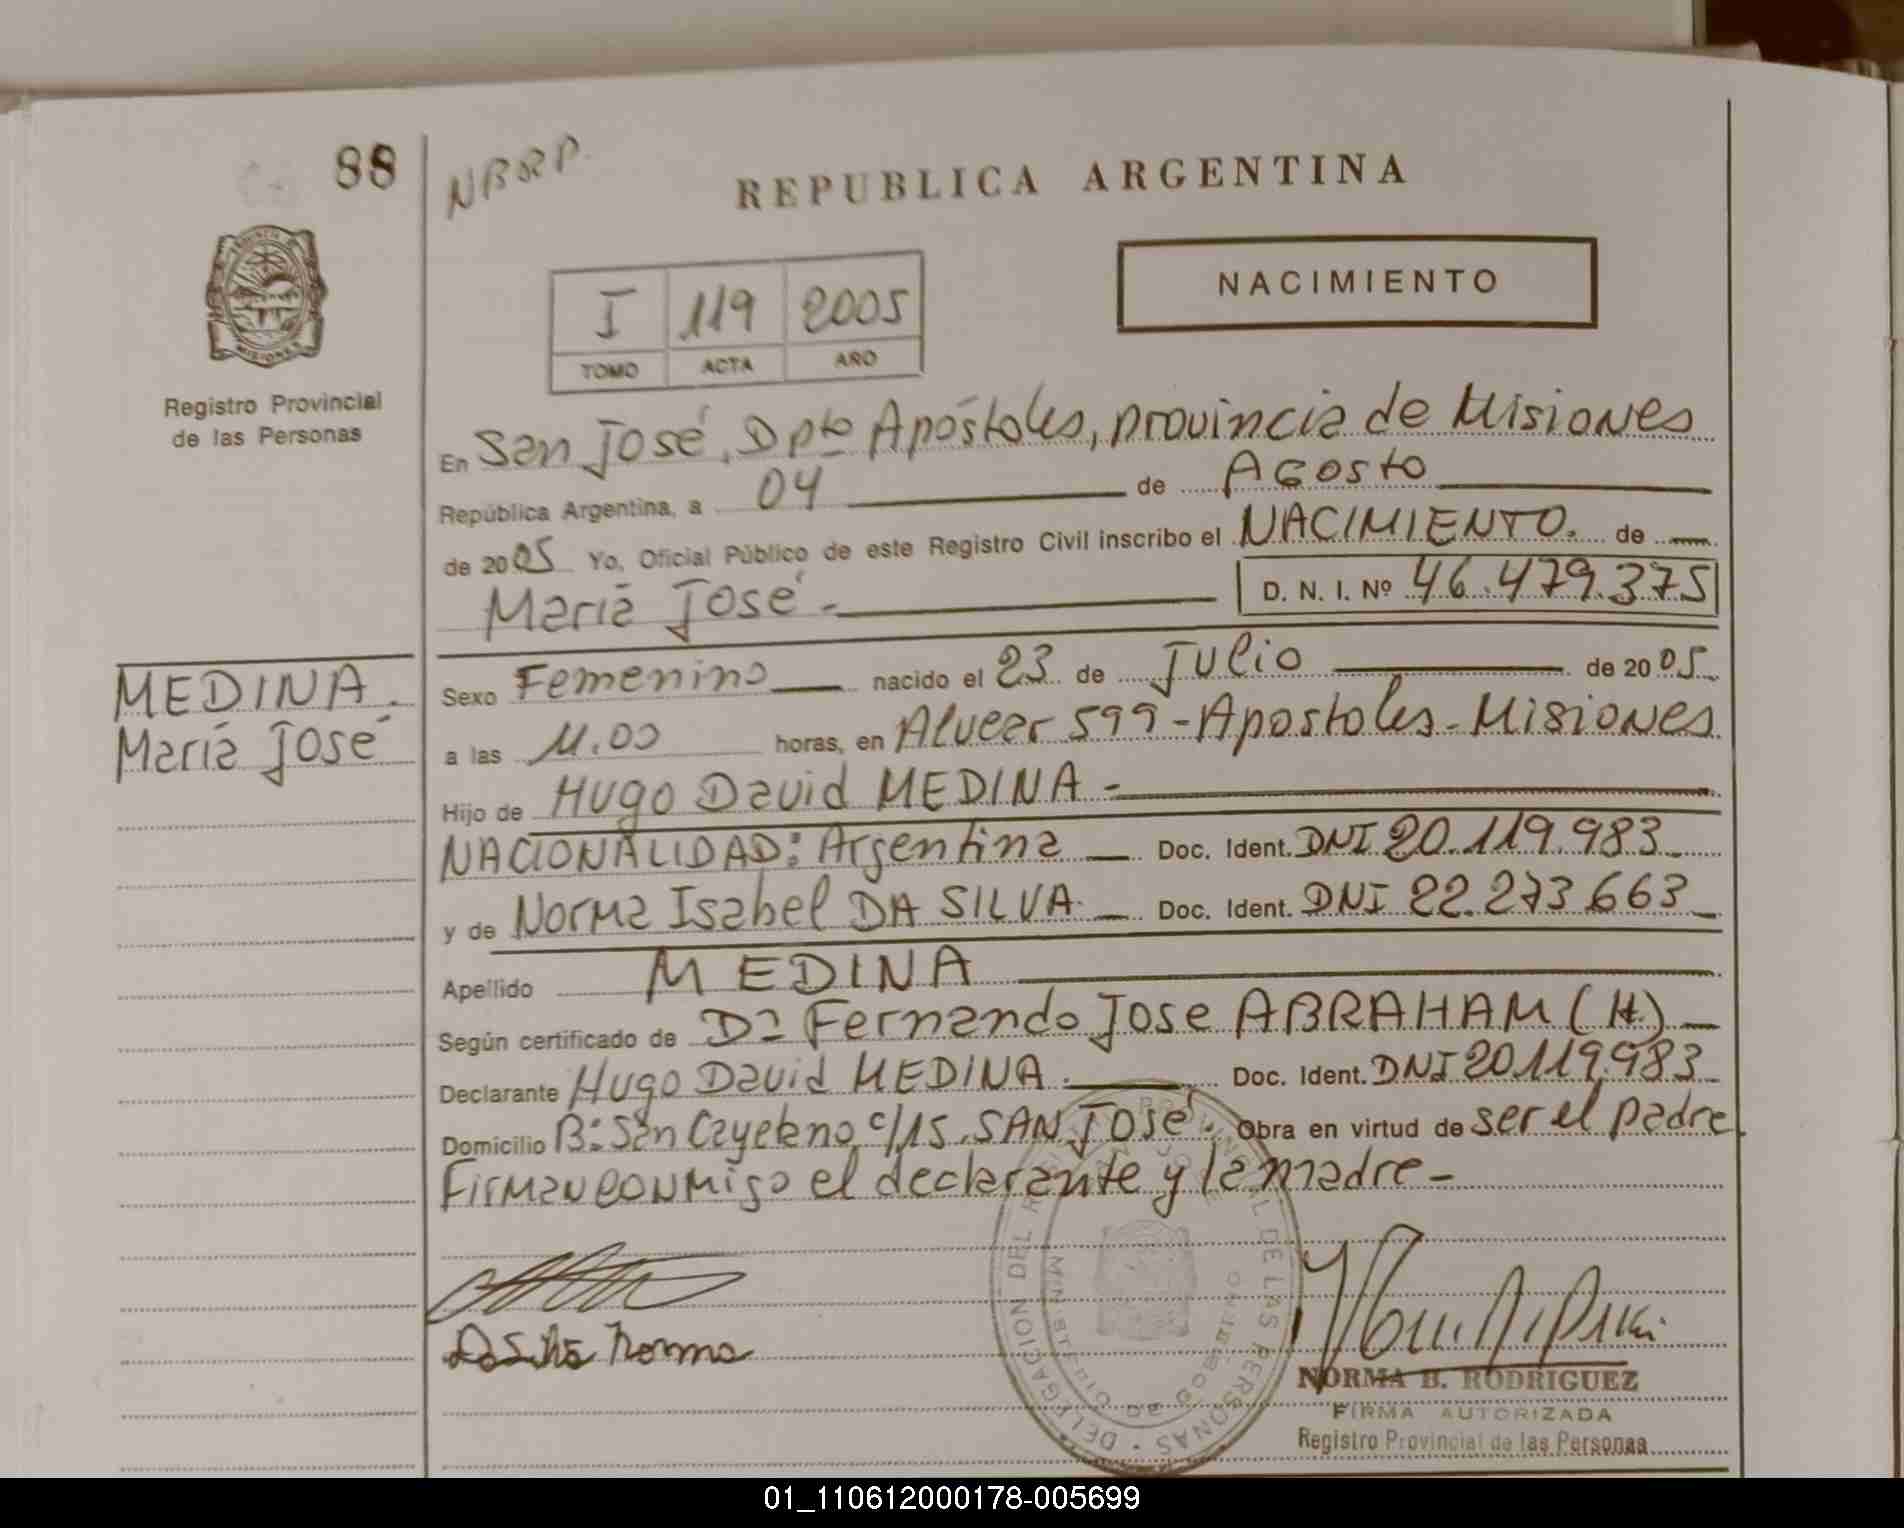 88
NBRP.
REPUBLICA ARGENTINA
NACIMIENTO
I 119 2005
TOMO ACTA AÑO
PROVINCIA DE
MISIONES
Registro Provincial
de las Personas
En San José, Dpto Apóstoles, provincia de Misiones
República Argentina, a 04 de Agosto
de 2005 Yo, Oficial Público de este Registro Civil inscribo el NACIMIENTO. de
María José - D. N. I. Nº 46.479.375
MEDINA.
María José
Sexo Femenino nacido el 23 de Julio de 2005
a las 11.00 horas, en Alvear 599 - Apostoles - Misiones
Hijo de Hugo David MEDINA -
NACIONALIDAD: Argentina Doc. Ident. DNI 20.119.983
y de Norma Isabel DA SILVA Doc. Ident. DNI 22.273.663
Apellido MEDINA
Según certificado de Dº Fernando Jose ABRAHAM (H.)
Declarante Hugo David MEDINA. Doc. Ident. DNI 20.119.983
Domicilio Bº San Cayetano c/15. SAN José. Obra en virtud de ser el padre
Firman conmigo el declarante y la madre -
Da Silva Norma
DELEGACION DEL REGISTRO PROVINCIAL DE LAS PERSONAS
MINISTERIO DE GOBIERNO
NORMA B. RODRIGUEZ
FIRMA AUTORIZADA
Registro Provincial de las Personas
01_110612000178-005699